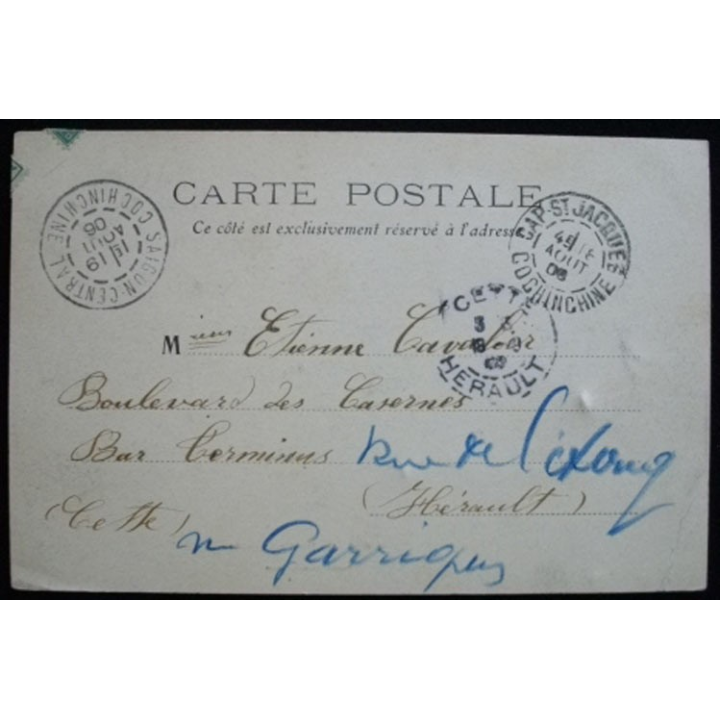 CARTE POSTALE
Ce côté est exclusivement réservé à l'adresse
SAIGON-CENTRAL
COCHINCHINE
19
AOUT
06
CAP-ST JACQUES
AOUT
COCHINCHINE
CETTE
HERAULT
M ieur Etienne Cavalier
Boulevard des Casernes
Bar Terminus rue de
(Hérault)
(Cette)
Garrigues